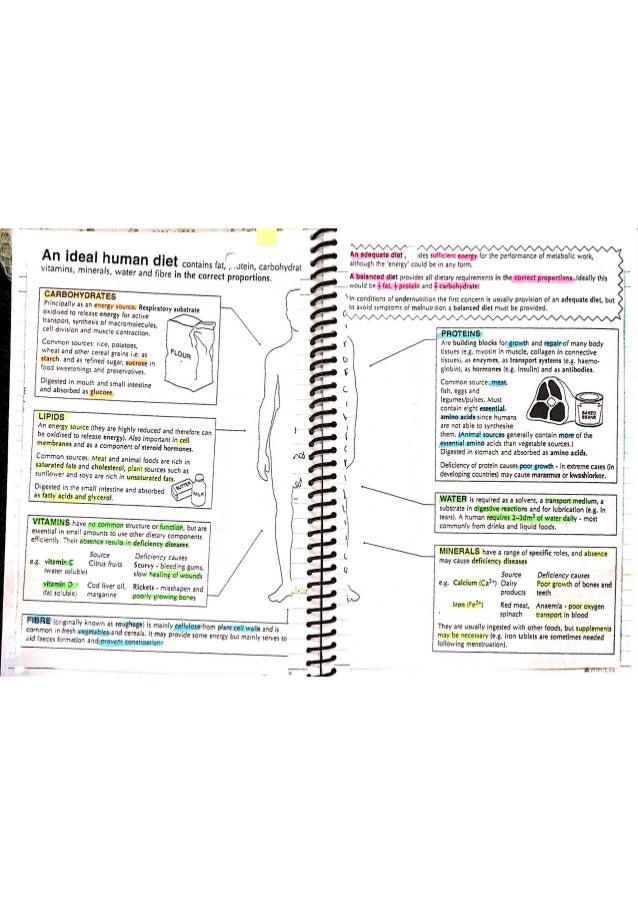 An ideal human diet contains fat, protein, carbohydrat
vitamins, minerals, water and fibre in the correct proportions.
CARBOHYDRATES
Principally as an energy source. Respiratory substrate
oxidised to release energy for active
transport, synthesis of macromolecules,
cell division and muscle contraction.
Common sources: rice, potatoes,
wheat and other cereal grains i.e. as
starch, and as refined sugar, sucrose in
food sweetenings and preservatives.
Digested in mouth and small intestine
and absorbed as glucose.
FLOUR
LIPIDS
An energy source (they are highly reduced and therefore can
be oxidised to release energy). Also important in cell
membranes and as a component of steroid hormones.
Common sources: Meat and animal foods are rich in
saturated fats and cholesterol, plant sources such as
sunflower and soya are rich in unsaturated fats.
Digested in the small intestine and absorbed
as fatty acids and glycerol.
BUTTER
MILK
VITAMINS have no common structure or function, but are
essential in small amounts to use other dietary components
efficiently. Their absence results in deficiency diseases.
Source Deficiency causes
e.g. vitamin C Citrus fruits Scurvy - bleeding gums,
(water soluble) slow healing of wounds
vitamin D Cod liver oil, Rickets - misshapen and
(fat soluble) margarine poorly growing bones
FIBRE (originally known as roughage) is mainly cellulose from plant cell walls and is
common in fresh vegetables and cereals. It may provide some energy but mainly serves to
aid faeces formation and prevent constipation.
An adequate diet, ides sufficient energy for the performance of metabolic work,
although the 'energy' could be in any form.
A balanced diet provides all dietary requirements in the correct proportions. Ideally this
would be 1/7 fat, 1/7 protein and 5/7 carbohydrate.
In conditions of undernutrition the first concern is usually provision of an adequate diet, but
to avoid symptoms of malnutrition a balanced diet must be provided.
PROTEINS
Are building blocks for growth and repair of many body
tissues (e.g. myosin in muscle, collagen in connective
tissues), as enzymes, as transport systems (e.g. haemo-
globin), as hormones (e.g. insulin) and as antibodies.
Common source: meat,
fish, eggs and
legumes/pulses. Must
contain eight essential
amino acids since humans
are not able to synthesise
them. (Animal sources generally contain more of the
essential amino acids than vegetable sources.)
Digested in stomach and absorbed as amino acids.
Deficiency of protein causes poor growth - in extreme cases (in
developing countries) may cause marasmus or kwashiorkor.
BAKED
BEANS
WATER is required as a solvent, a transport medium, a
substrate in digestive reactions and for lubrication (e.g. in
tears). A human requires 2-3dm³ of water daily - most
commonly from drinks and liquid foods.
MINERALS have a range of specific roles, and absence
may cause deficiency diseases
Source Deficiency causes
e.g. Calcium (Ca²⁺) Dairy Poor growth of bones and
products teeth
Iron (Fe²⁺) Red meat, Anaemia - poor oxygen
spinach transport in blood
They are usually ingested with other foods, but supplements
may be necessary (e.g. iron tablets are sometimes needed
following menstruation).